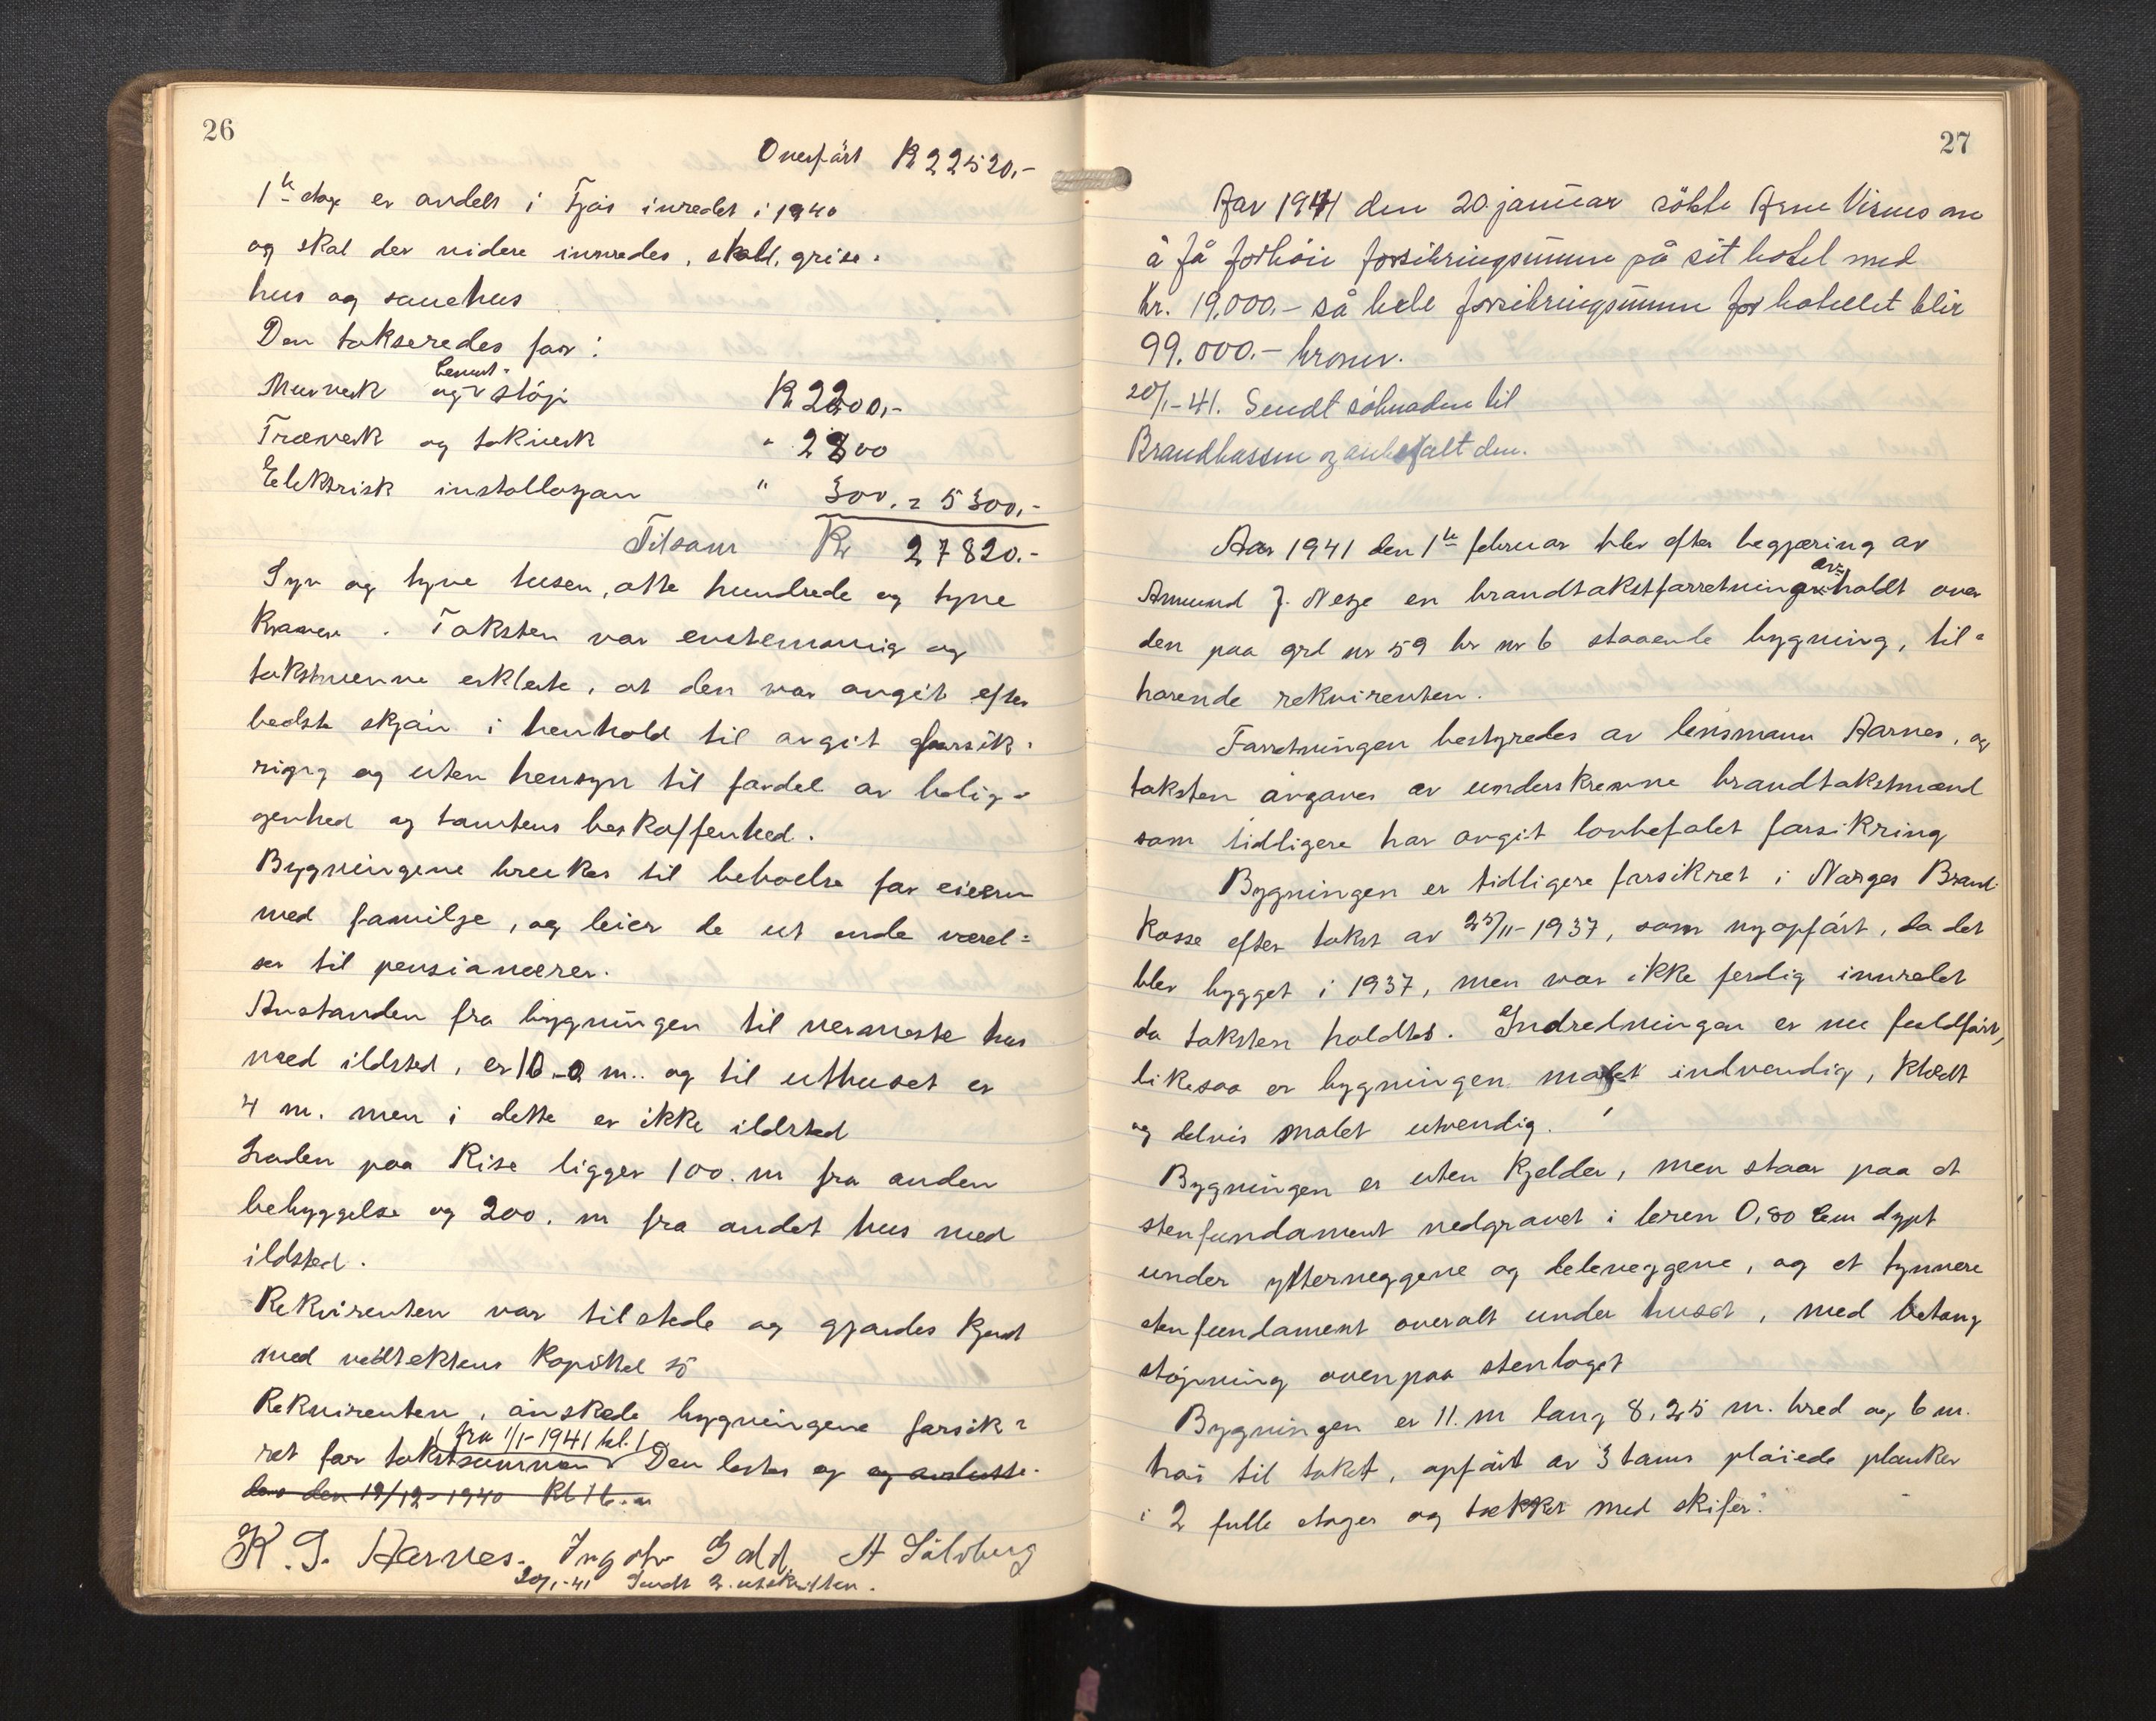 26
Overført Kr 22520,-
1ste etage er avdelt i Fjøs inredet i 1940
og skal der videre innredes, stald, grise-
hus og sauehus
Den takseredes for:
Murverk og cement- støp Kr 2200,-
Træverk og takverk " 2800
Elektrisk installasjon " 300,- = 5300,-
Tilsam Kr 27820.-
Syv og tyve tusen, otte hundrede og tyve
Kroner. Taksten var enstemmig og
takstmenne erklerte, at den var avgit efter
bedste skjøn i henhold til avgit forsik-
ring og uten hensyn til fordel av belig-
genhed og tomtens beskaffenhed.
Bygningene brukes til beboelse for eieren
med familje, og leier de ut ende værel=
ser til pensionærer.
Avstanden fra bygningen til nermeste hus
med ildsted, er 10,0 m.. og til uthuset er
4 m. men i dette er ikke ildsted
Laden paa Rise ligger 100. m fra anden
bebyggelse og 200. m fra andet hus med
ildsted.
Rekvirenten var tilstede og gjordes kjent
med vedtektens Kapittel 5
Rekvirenten, ønskede bygningene forsik=
ret for takstsummen (fra 1/1-1941 kl. ) Den lestes og og avslutte-
des den 19/12-1940 Kl 16.
K. J. Aarnes. Ingolv Gald A Sølvberg
20/1-41 Sendt 2. utskriften.
27
Aar 1941 den 20. januar søkte Arne Visnes om
å få forhøie forsikringsumme på sit hotel med
kr. 19,000.- så hele forsikringsumme for hotellet blir
99.000.- kroner.
20/1-41. Sendt søknaden til
Brandkassen og anbefalt den.
Aar 1941 den 1ste februar blev efter begjæring av
Amund J. Nesje en brandtakstforretning avholdt over
den paa grd nr 59 br nr 6 staaende bygning, til-
hørende rekvirenten.
Forretningen bestyredes av lensmann Aarnes, og
taksten avgaves av underskrevne brandtakstmænd
som tidligere har avgit lovbefalet forsikring
Bygningen er tidligere forsikret i Norges Brand-
kasse efter takst av 25/11-1937, som nyopført, da det
blev bygget i 1937, men var ikke ferdig innredet
da taksten holdtes. Indredningen er nu fuldført,
likesaa er bygningen malet indvendig, klædt
og delvis malet utvendig.
Bygningen er uten kjelder, men staar paa et
stenfundament nedgravet i leren 0,80 cm dypt
under yttervæggene og deleveggene, og et tynnere
stenfundament overalt under huset, med betong
støpning ovenpaa stenlaget
Bygningen er 11. m lang 8,25 m. bred og 6 m.
høi til taket, opført av 3 toms pløiede planker
i 2 fulle etager og tækket med skifer.